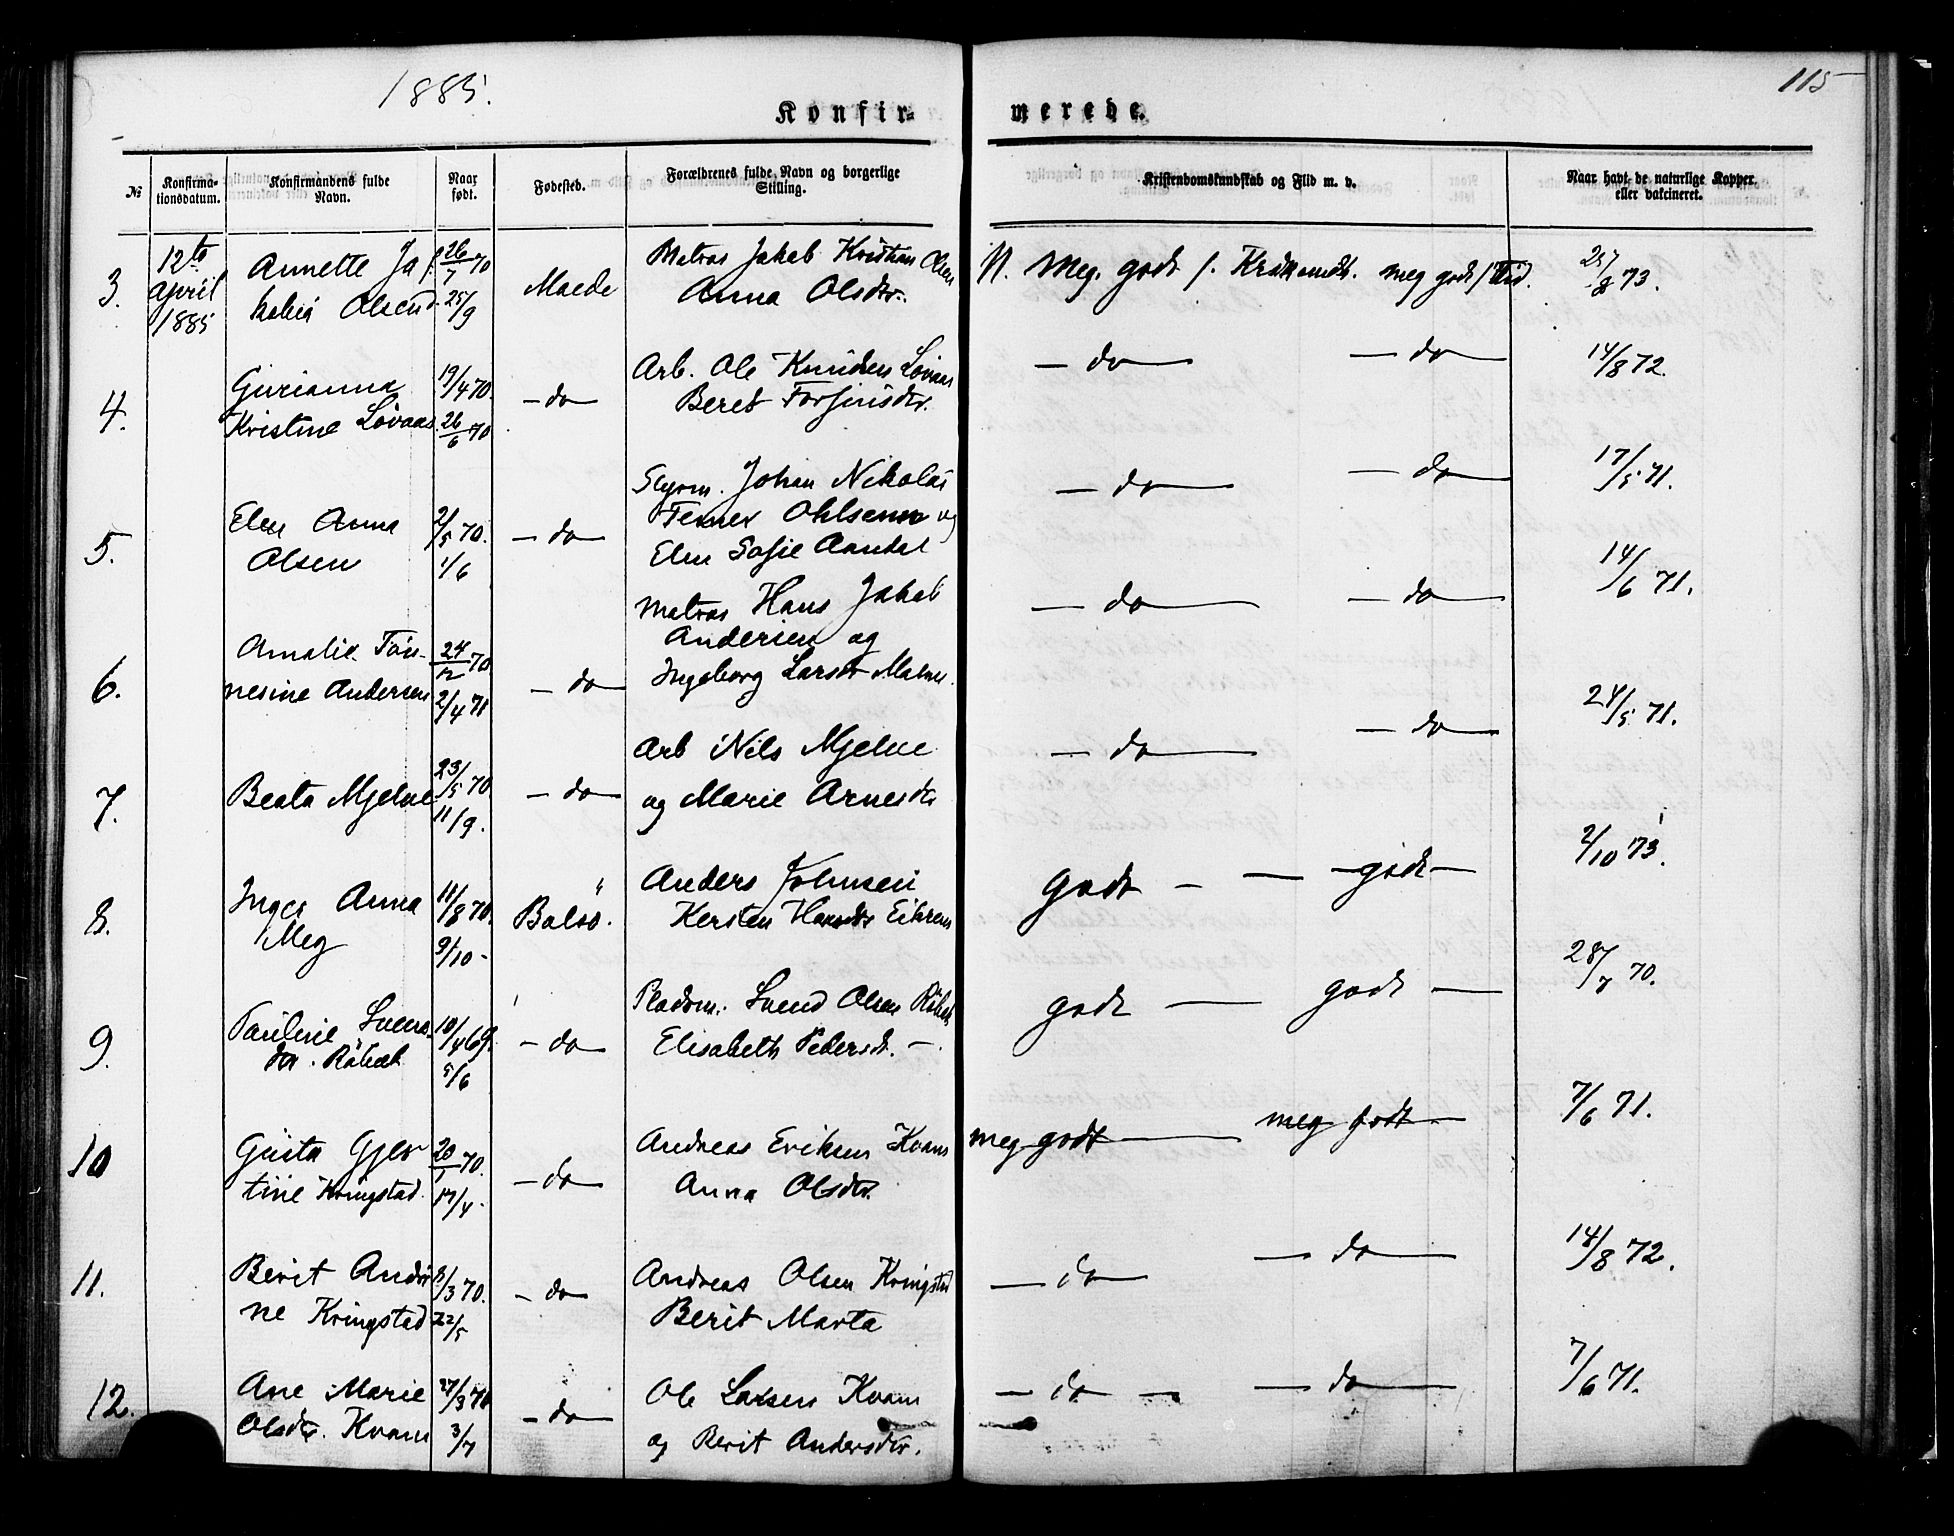 1885.
115
Konfir-
merede.
No
Konfirma-
tionsdatum.
Konfirmandens fulde
Navn.
Naar
født.
Fødested.
Forældrenes fulde Navn og borgerlige
Stilling.
Kristendomskundskab og Flid m. v.
Naar havt de naturlige Kopper
eller vakcineret.
3.
12te
April
1885
Annette Ja
kobia Olsend.
26/7 70
25/9
Molde
Matros Jakob Kristian Olsen
Anna Olsdtr.
N. Meg. godt f. Kr. meg godt f. Flid.
25/8 73.
4.
Gurianna
Kristine Lovaas
19/4 70.
26/6 70
- do
Arb. Ole Knudsen Lovaas
Beret Torfinsdtr.
- do -
- do -
14/8 72.
5.
Elen Anna
Olsen
2/5 70.
1/6
- do
Styrm. Johan Nikolai
Ohlsen og
Elen Sofie Aandal
- do -
- do -
17/5 71.
6.
Amalie Tøn-
nesine Andersen
24/12 70
2/4 71
- do
Matros Hans Jakob
Andersen og
Ingeborg Larsdtr
- do -
- do -
14/6 71.
7.
Beata Mjelve
23/5 70
11/9.
- do
Arb Nils Mjelve
og Marie Arnesdtr
- do -
- do -
24/5 71.
8.
Inger Anna
Meg
11/8 70.
9/10 -
Bolsø.
Anders Johnsen
Kersten Hansdtr Eikrem
godt -
- godt -
2/10 73.
9.
Pauline Svens
dtr. Røbæk
10/4 69.
5/6
- do
Pladsm. Svend Olsen Røbæk
Elisabeth Pedersd. -
godt -
godt -
28/7 70.
10
Gusta Gjer
tine Kringstad
20/1 70.
17/4.
- do
Andreas Eriksen Kvam
Anna Olsdtr.
meg godt -
meg godt -
7/6 71.
11.
Berit Andri
ne Kringstad
8/3 70.
22/5
- do
Andreas Olsen Kringstad
Berit Marta
- do -
- do -
14/8 72.
12.
Ane Marie
Olsdtr. Kvam
27/3 70
3/7
- do
Ole Larsen Kvam
og Berit Andersdtr.
- do -
- do -
7/6 71.